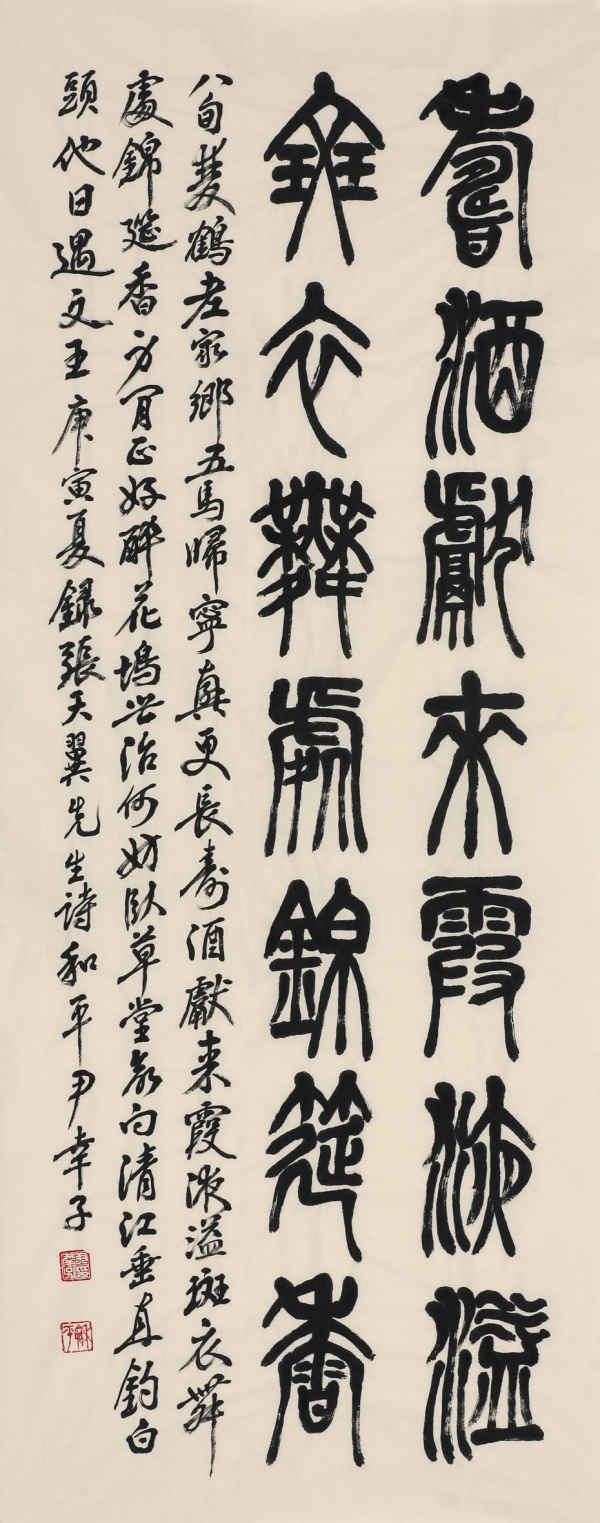 壽酒獻來霞液溢
斑衣舞處錦筵香
八旬雙鶴老家鄉五馬歸寧興更長壽酒獻來霞液溢斑衣舞
處錦筵香身閒正好醉花塢世治何妨臥草堂向清江垂直釣白
頭他日遇文王庚寅夏錄張天翼先生詩和平尹幸子